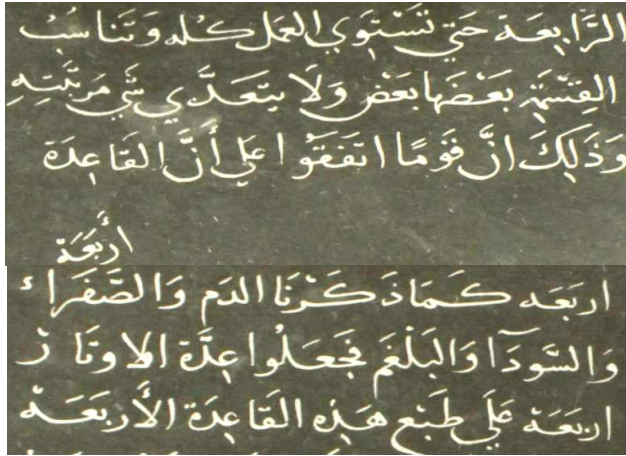 الرَّابِعَة حَتي تَسْتَوِي العَمَل كُله وَتَناسُبُ
القِسْمَة بَعْضَها بَعْض وَلَا يتعَدَّي شَي مَرتَبَتِهِ
وَذَلِكَ انَّ قَوْمًا اتفَقَوُا عَلي أَنَّ القَاعِدَة
أربَعَة
اربَعَه كَمَاذَكَرْنَا الدَم وَالصَّفَراء
وَالسَّودَآ وَالبَلْغَم فَجَعَلُوا عِدَّة الاوتَار
اربَعَة عَلَي طَبْع هَذِه القَاعِدَة الأَربَعَه